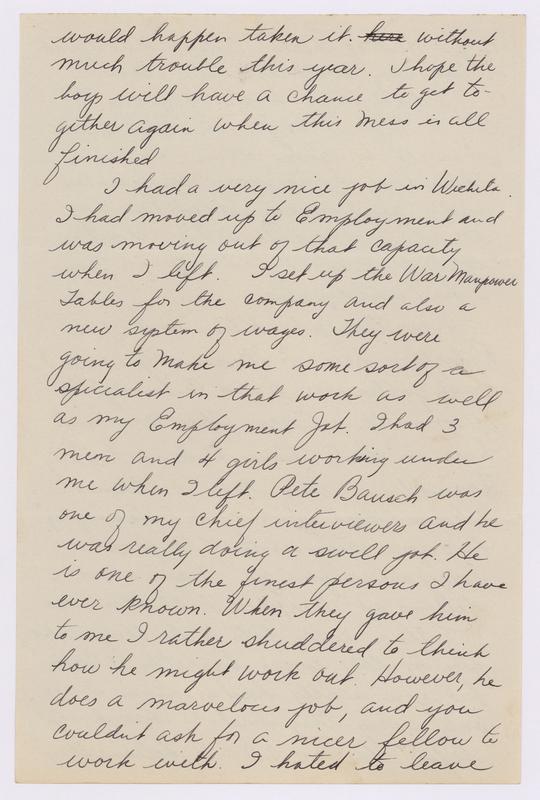 would happen taken it. here without
much trouble this year. I hope the
boys will have a chance to get to-
gether again when this mess is all
finished
I had a very nice job in Wichita.
I had moved up to Employment and
was moving out of that capacity
when I left. I set up the War Manpower
Tables for the company and also a
new system of wages. They were
going to make me some sort of a
specialist in that work as well
as my Employment Job. I had 3
men and 4 girls working under
me when I left. Pete Bausch was
one of my chief interviewers and he
was really doing a swell job. He
is one of the finest persons I have
ever known. When they gave him
to me I rather shuddered to think
how he might work out. However, he
does a marvelous job, and you
couldn't ask for a nicer fellow to
work with. I hated to leave